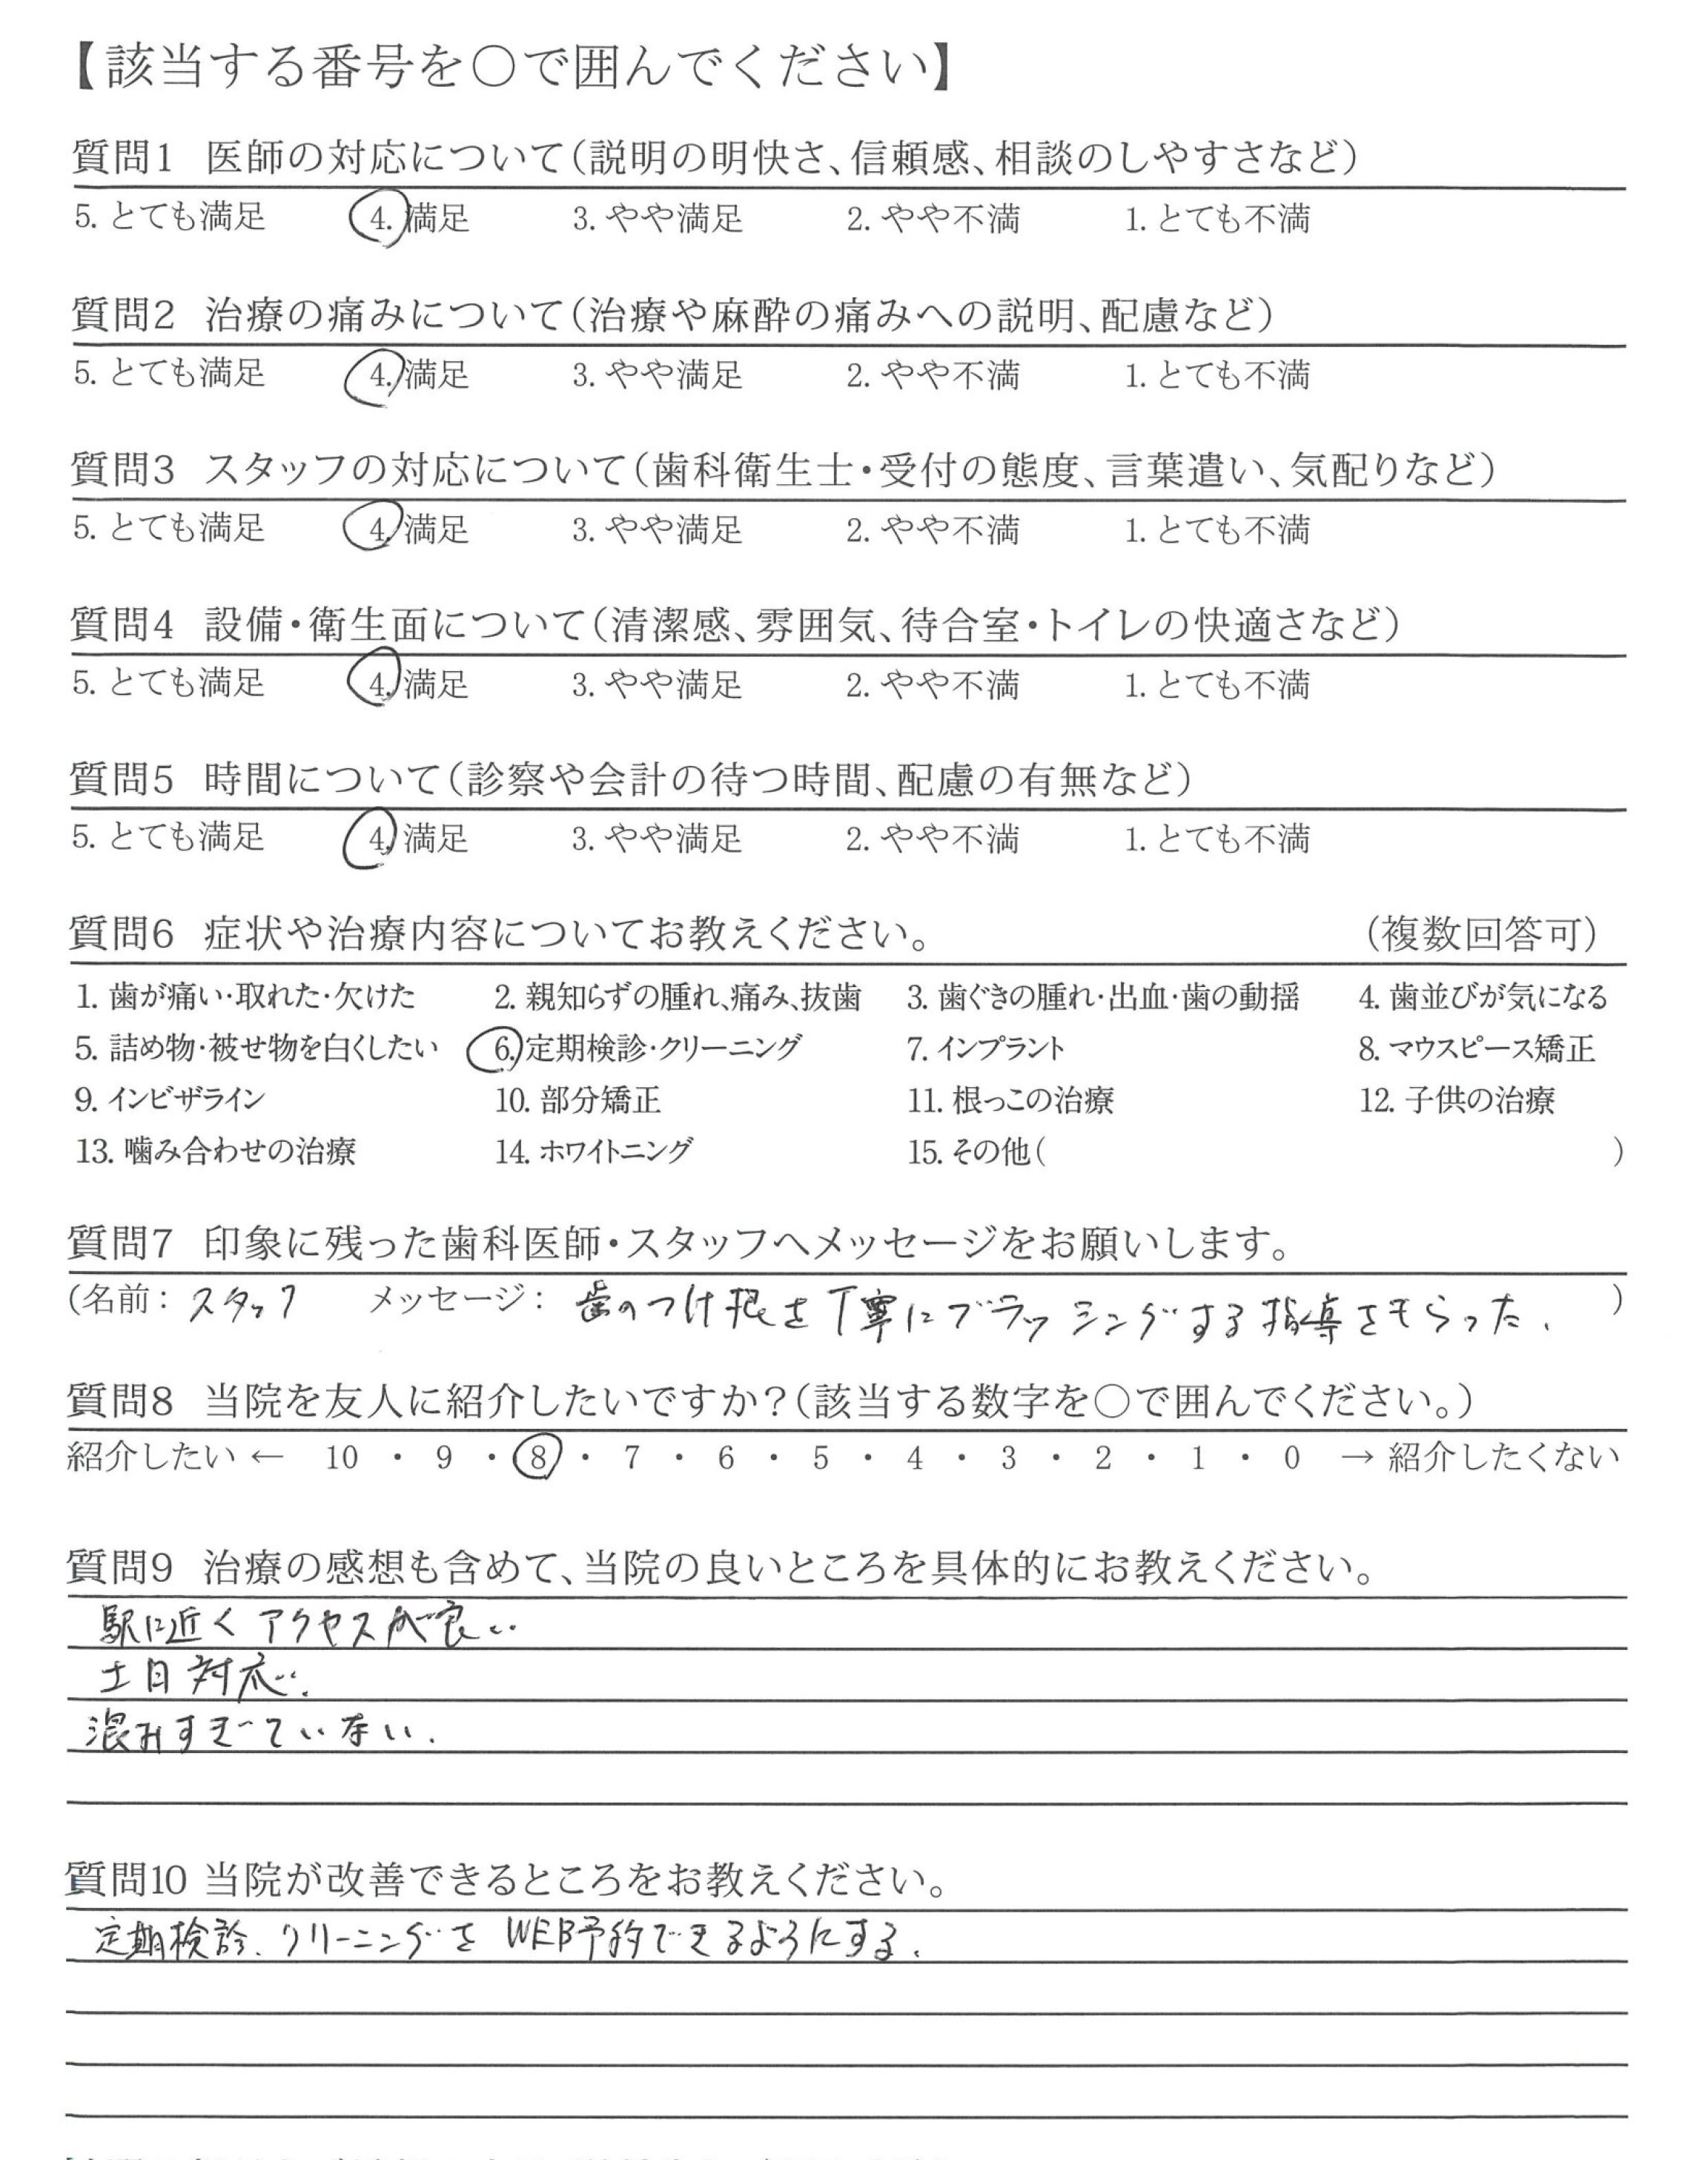 【該当する番号を○で囲んでください】
質問1 医師の対応について(説明の明快さ、信頼感、相談のしやすさなど)
5. とても満足 4. 満足 3. やや満足 2. やや不満 1. とても不満
質問2 治療の痛みについて(治療や麻酔の痛みへの説明、配慮など)
5. とても満足 4. 満足 3. やや満足 2. やや不満 1. とても不満
質問3 スタッフの対応について(歯科衛生士・受付の態度、言葉遣い、気配りなど)
5. とても満足 4. 満足 3. やや満足 2. やや不満 1. とても不満
質問4 設備・衛生面について(清潔感、雰囲気、待合室・トイレの快適さなど)
5. とても満足 4. 満足 3. やや満足 2. やや不満 1. とても不満
質問5 時間について(診察や会計の待つ時間、配慮の有無など)
5. とても満足 4. 満足 3. やや満足 2. やや不満 1. とても不満
質問6 症状や治療内容についてお教えください。 (複数回答可)
1. 歯が痛い・取れた・欠けた 2. 親知らずの腫れ、痛み、抜歯 3. 歯ぐきの腫れ・出血・歯の動揺 4. 歯並びが気になる
5. 詰め物・被せ物を白くしたい 6. 定期検診・クリーニング 7. インプラント 8. マウスピース矯正
9. インビザライン 10. 部分矯正 11. 根っこの治療 12. 子供の治療
13. 噛み合わせの治療 14. ホワイトニング 15. その他( )
質問7 印象に残った歯科医師・スタッフへメッセージをお願いします。
(名前: スタッフ メッセージ: 歯のつけ根を丁寧にブラッシングする指導をもらった. )
質問8 当院を友人に紹介したいですか?(該当する数字を○で囲んでください。)
紹介したい ← 10 ・ 9 ・ 8 ・ 7 ・ 6 ・ 5 ・ 4 ・ 3 ・ 2 ・ 1 ・ 0 → 紹介したくない
質問9 治療の感想も含めて、当院の良いところを具体的にお教えください。
駅に近くアクセスが良い.
土日対応.
混みすぎていない.
質問10 当院が改善できるところをお教えください。
定期検診、クリーニングをWEB予約できるようにする.